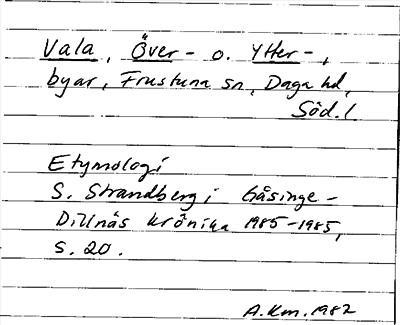 Vala, Över- o. Ytter-,
byar, Frustuna sn, Daga hd,
Söd. l.
Etymologi
S. Strandberg i Gåsinge-
Dillnäs krönika 1985-1985,
s. 20.
A.Km. 1982